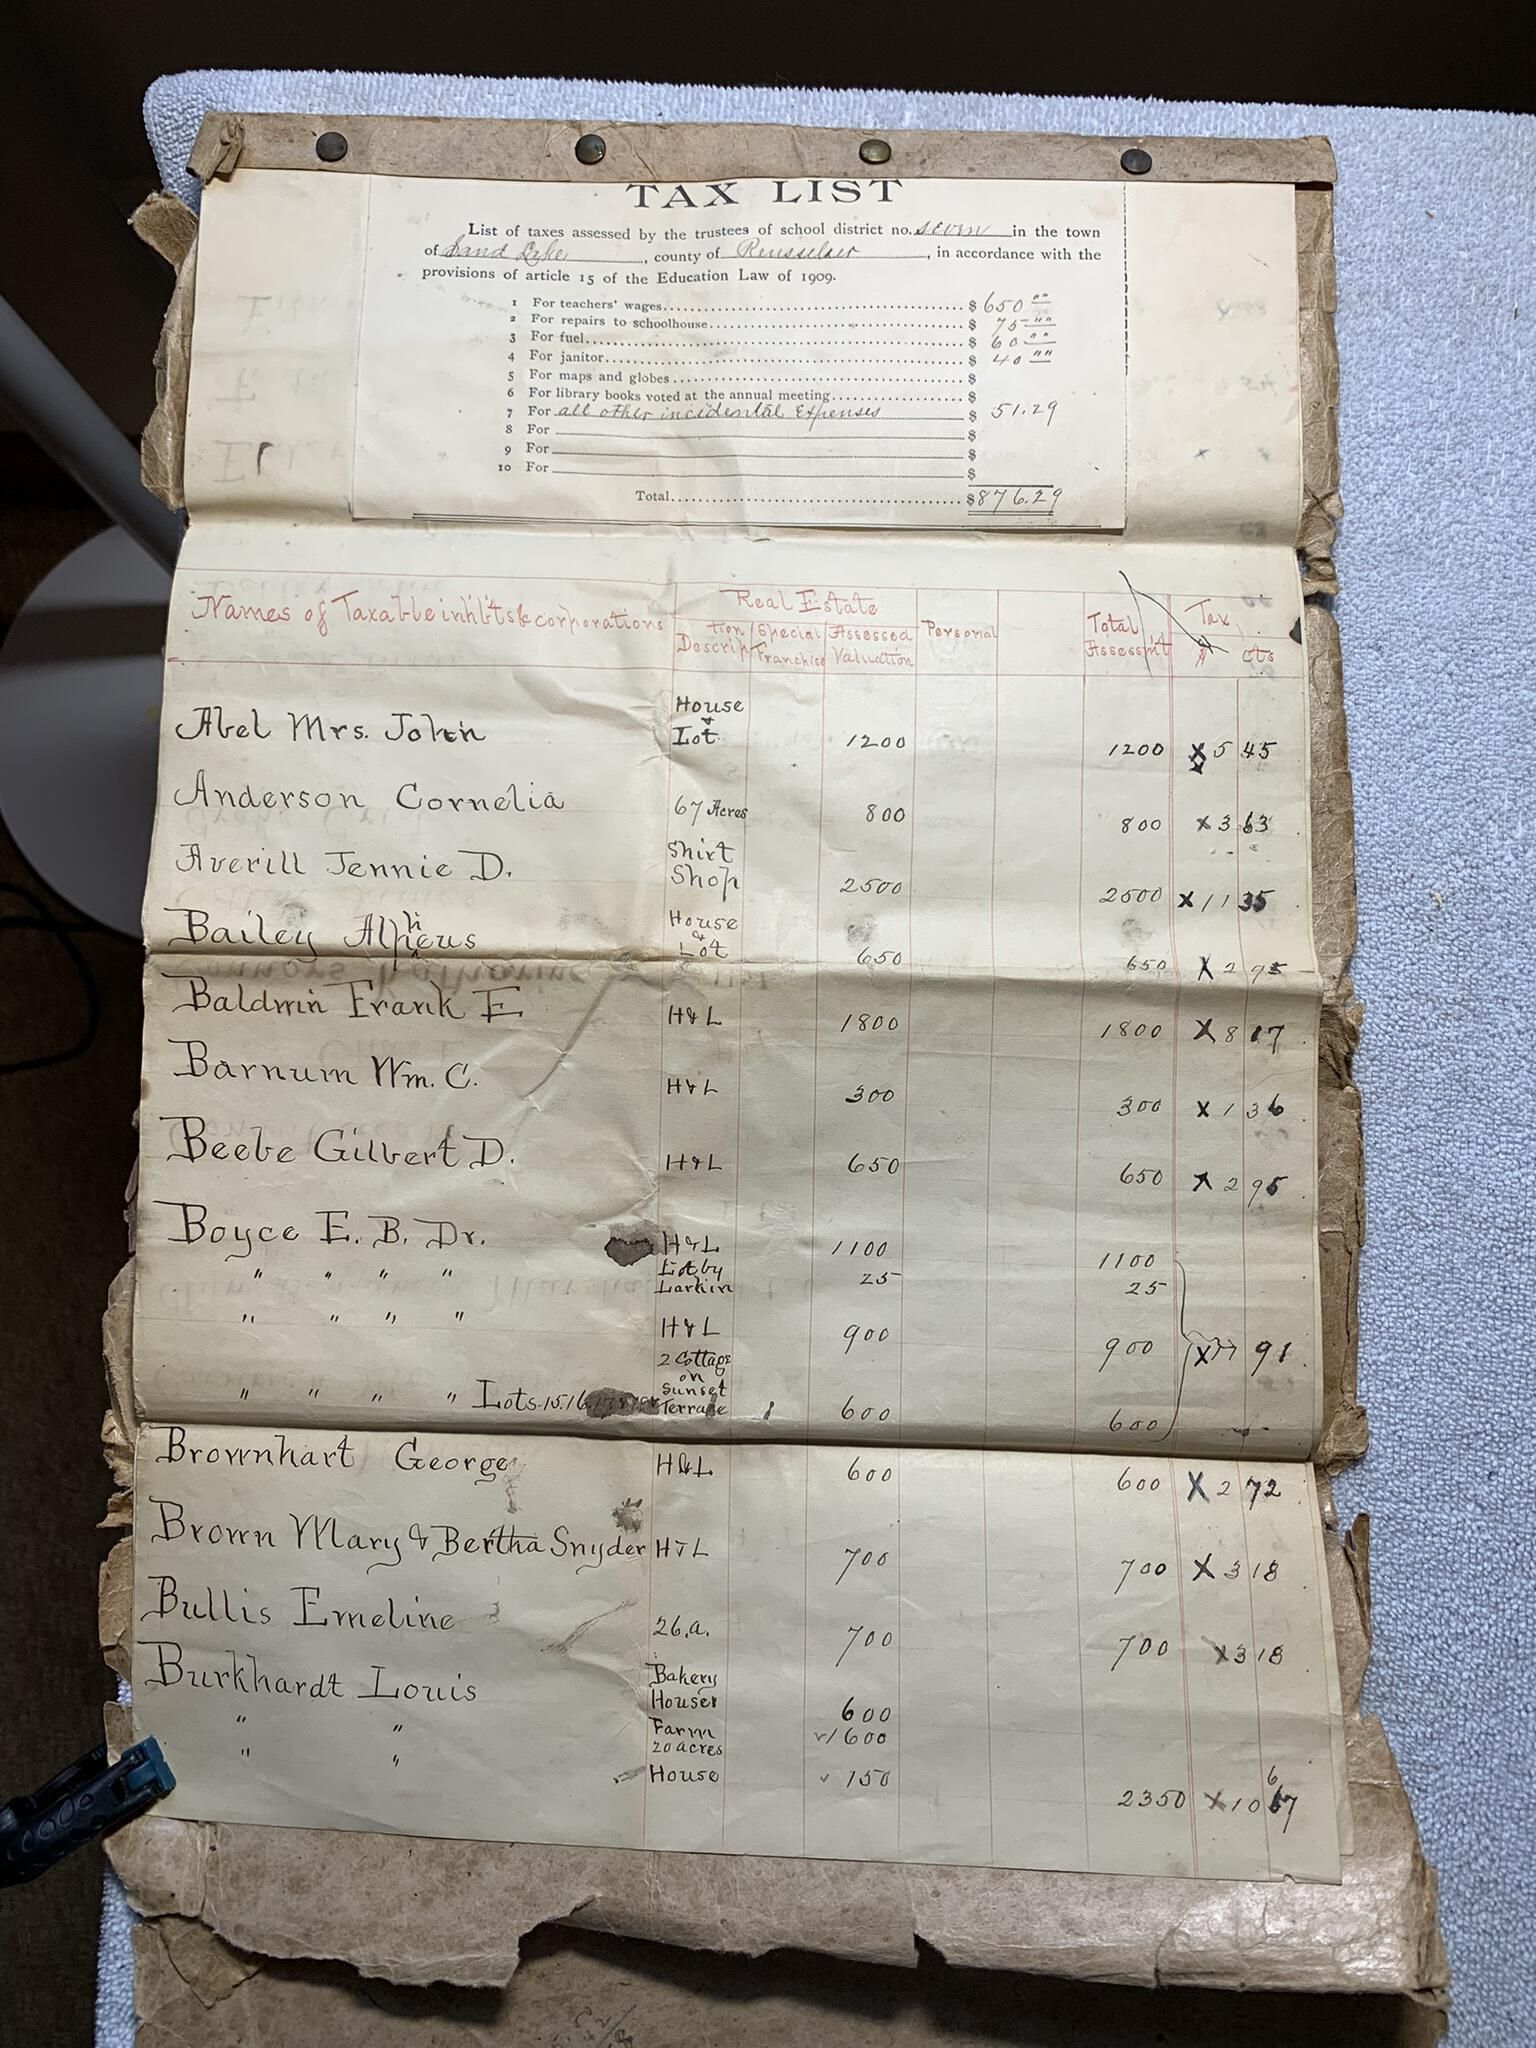 TAX LIST
List of taxes assessed by the trustees of school district no. seven in the town
of Sand Lake, county of Rensselaer, in accordance with the
provisions of article 15 of the Education Law of 1909.
1 For teachers' wages $650 ""
2 For repairs to schoolhouse $ 75 ""
3 For fuel $ 60 ""
4 For janitor $ 40 ""
5 For maps and globes $
6 For library books voted at the annual meeting $
7 For all other incidental Expenses $ 51.29
8 For $
9 For $
10 For $
Total $876.29
Names of Taxable inhbts & corporations Real Estate Total Tax
Description Special Franchise Assessed Valuation Personal Assessmt $ cts
Abel Mrs. John House & Lot 1200 1200 X 5 45
Anderson Cornelia 67 Acres 800 800 X 3 63
Averill Jennie D. Shirt Shop 2500 2500 X 11 35
Bailey Alpheus House & Lot 650 650 X 2 95
Baldwin Frank E H & L 1800 1800 X 8 17
Barnum Wm. C. H & L 300 300 X 1 36
Beebe Gilbert D. H & L 650 650 X 2 95
Boyce E. B. Dr. H & L 1100 1100
" " " " Lot by Larkin 25 25
" " " " H & L 900 900 X 91
" " " " Lots 15.16. 2 Cottage on Sunset Terrace 600 600
Brownhart George H & L 600 600 X 2 72
Brown Mary & Bertha Snyder H & L 700 700 X 3 18
Bullis Emeline 26.a. 700 700 X 3 18
Burkhardt Louis Bakery House 600
" " Farm 20 acres ✓1600
" " House ✓ 150 2350 X 10 67